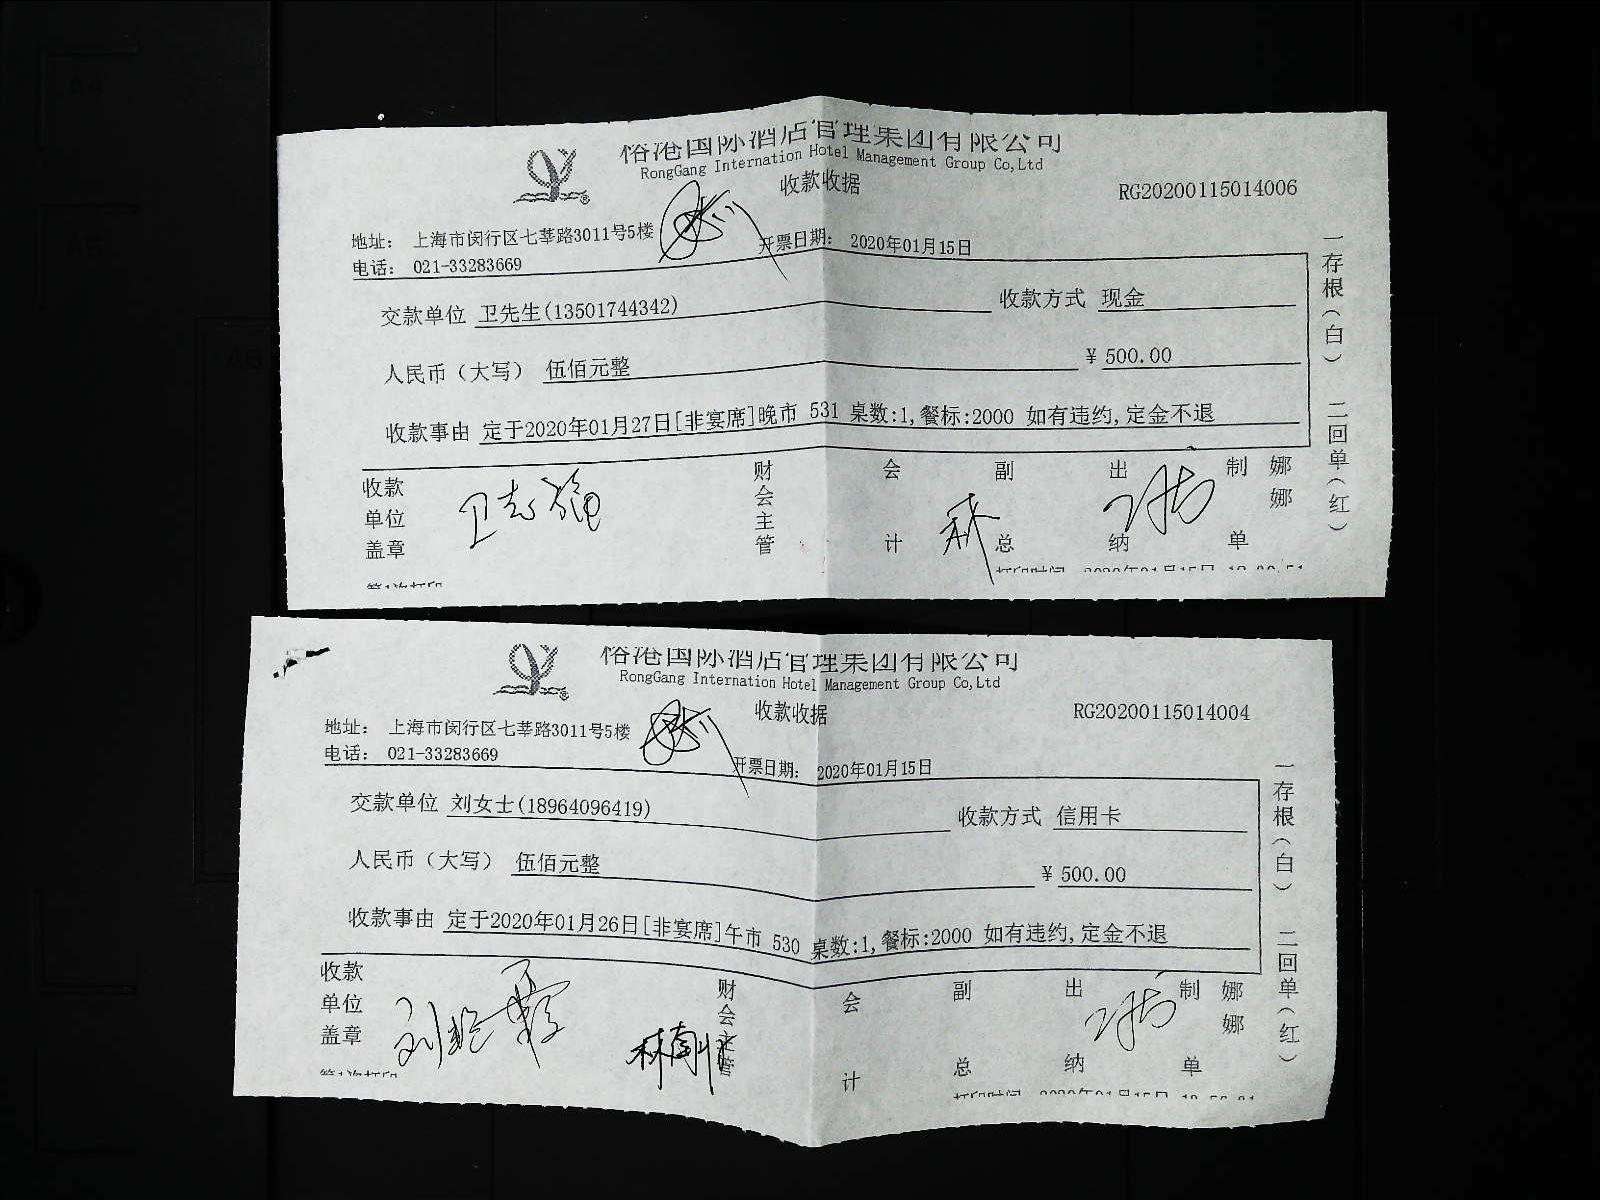 榕港国际酒店管理集团有限公司
RongGang Internation Hotel Management Group Co,Ltd
收款收据
RG20200115014006
地址： 上海市闵行区七莘路3011号5楼
电话： 021-33283669
开票日期： 2020年01月15日
交款单位 卫先生(13501744342) 收款方式 现金
人民币（大写） 伍佰元整 ￥500.00
收款事由 定于2020年01月27日[非宴席]晚市 531 桌数:1,餐标:2000 如有违约,定金不退
收款单位盖章 财会主管 会计 副总 出纳 制单 娜娜
一存根（白） 二回单（红）
第1次打印
榕港国际酒店管理集团有限公司
RongGang Internation Hotel Management Group Co,Ltd
收款收据
RG20200115014004
地址： 上海市闵行区七莘路3011号5楼
电话： 021-33283669
开票日期： 2020年01月15日
交款单位 刘女士(18964096419) 收款方式 信用卡
人民币（大写） 伍佰元整 ￥500.00
收款事由 定于2020年01月26日[非宴席]午市 530 桌数:1,餐标:2000 如有违约,定金不退
收款单位盖章 财会主管 会计 副总 出纳 制单 娜娜
一存根（白） 二回单（红）
第1次打印